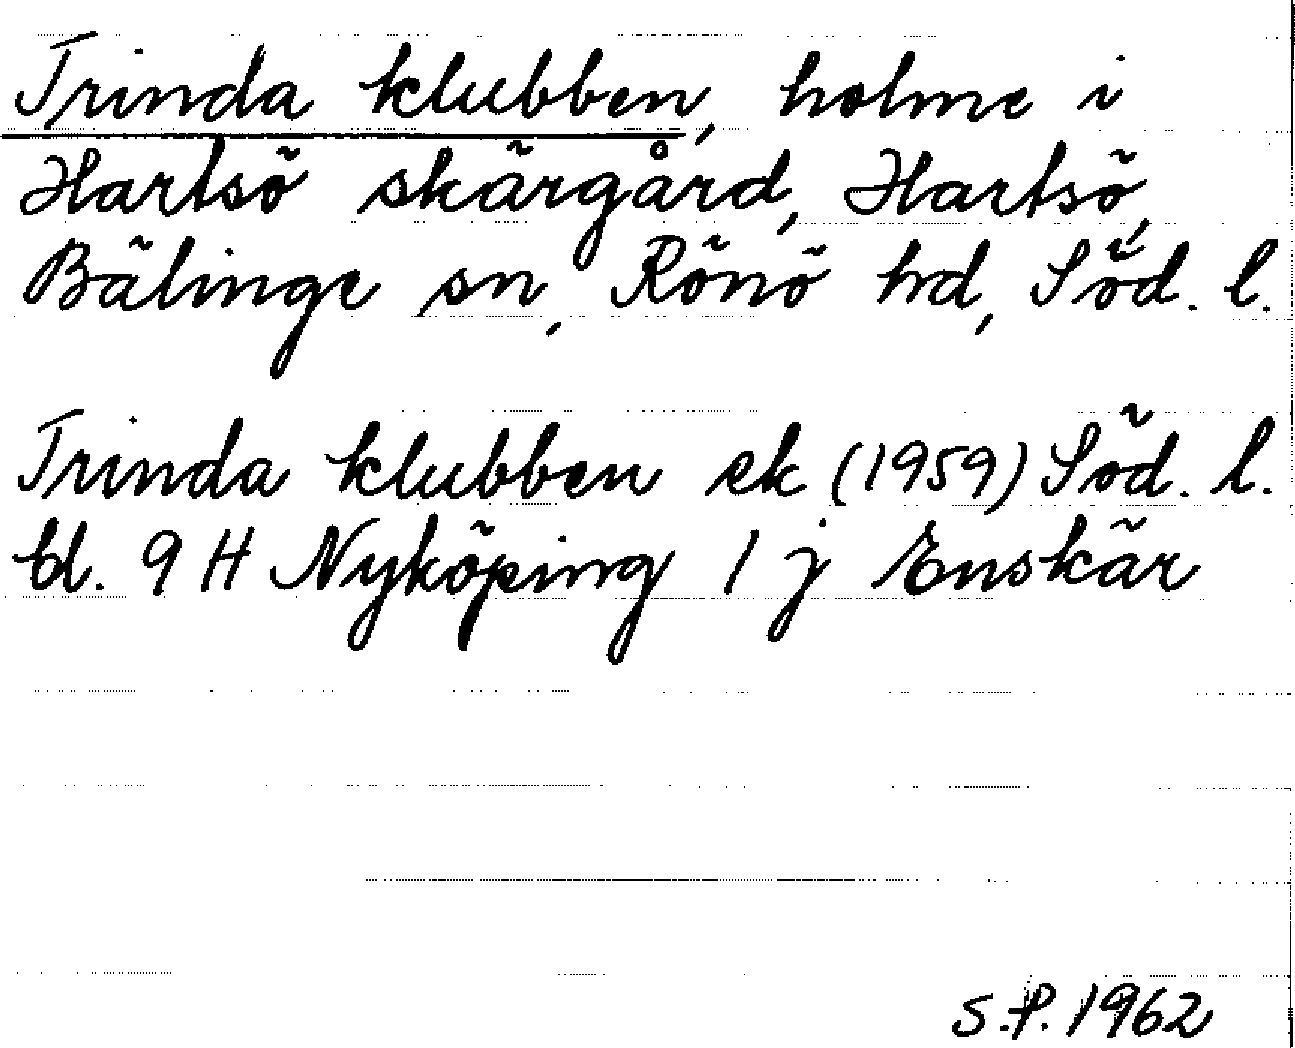 Trinda klubben, holme i
Hartsö skärgård, Hartsö,
Bälinge sn, Rönö hd, Söd. l.
Trinda klubben ek (1959) Söd. l.
bl. 9 H Nyköping 1 j Enskär
S.P. 1962